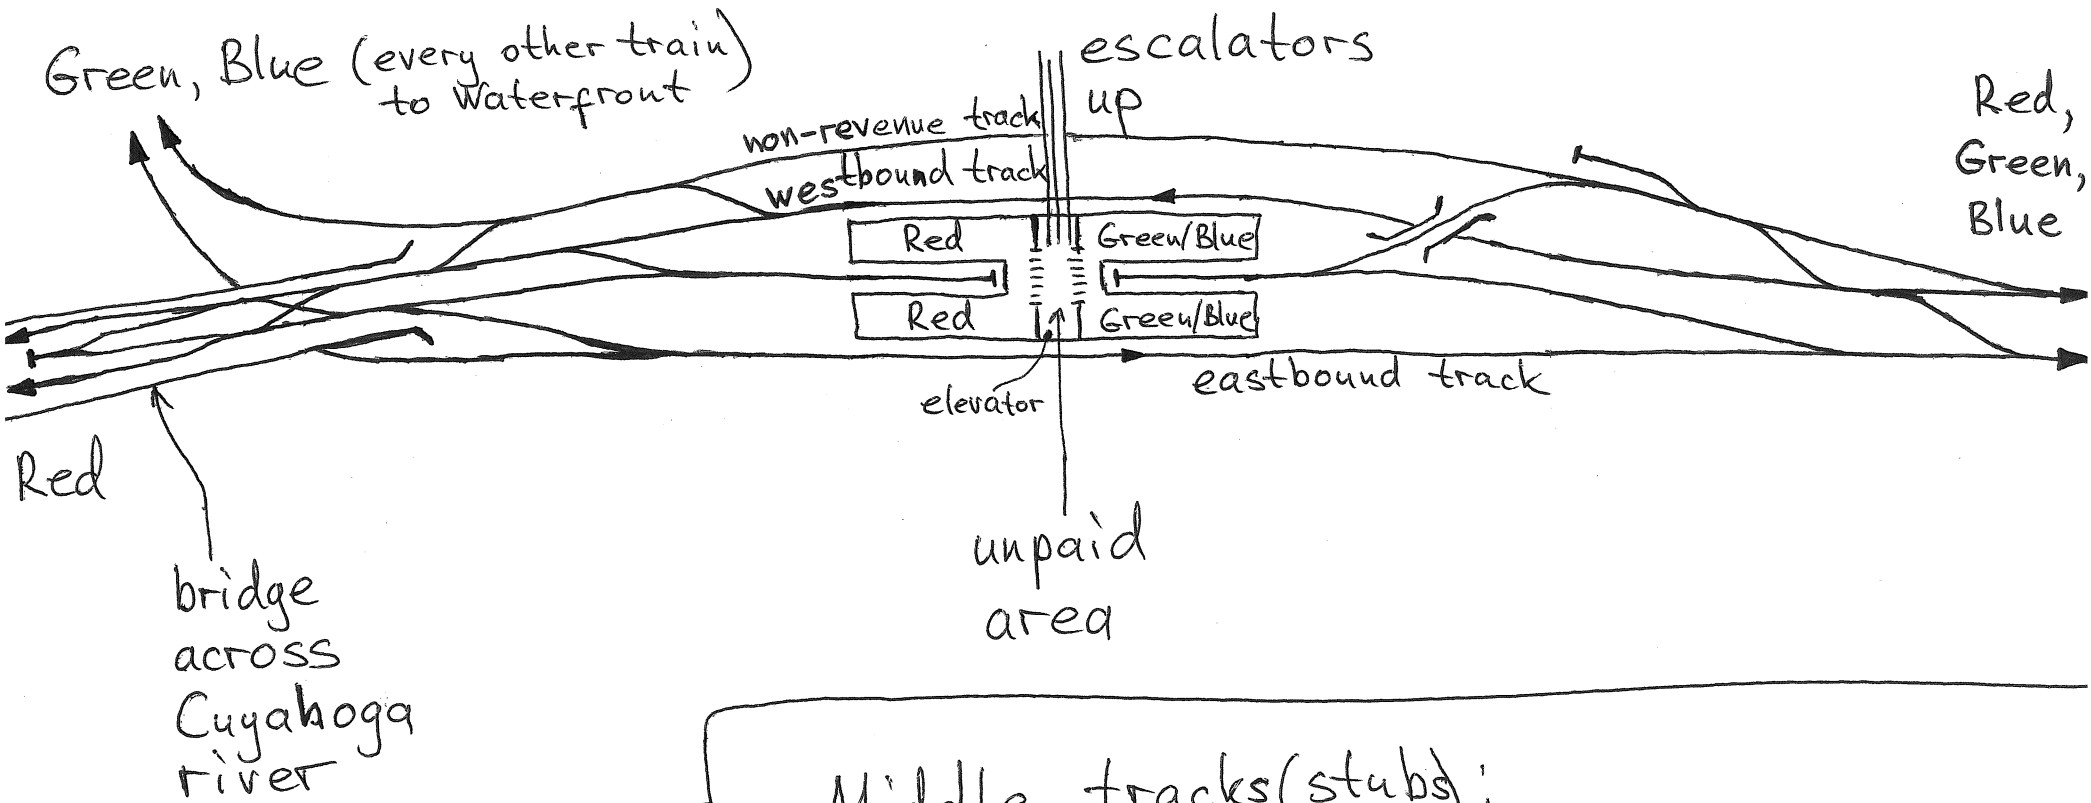 Green, Blue (every other train)
to Waterfront
escalators
up
Red,
Green,
Blue
non-revenue track
westbound track
Red
Green/Blue
Red
Green/Blue
elevator
eastbound track
Red
unpaid
area
bridge
across
Cuyahoga
river
Middle tracks (stubs):